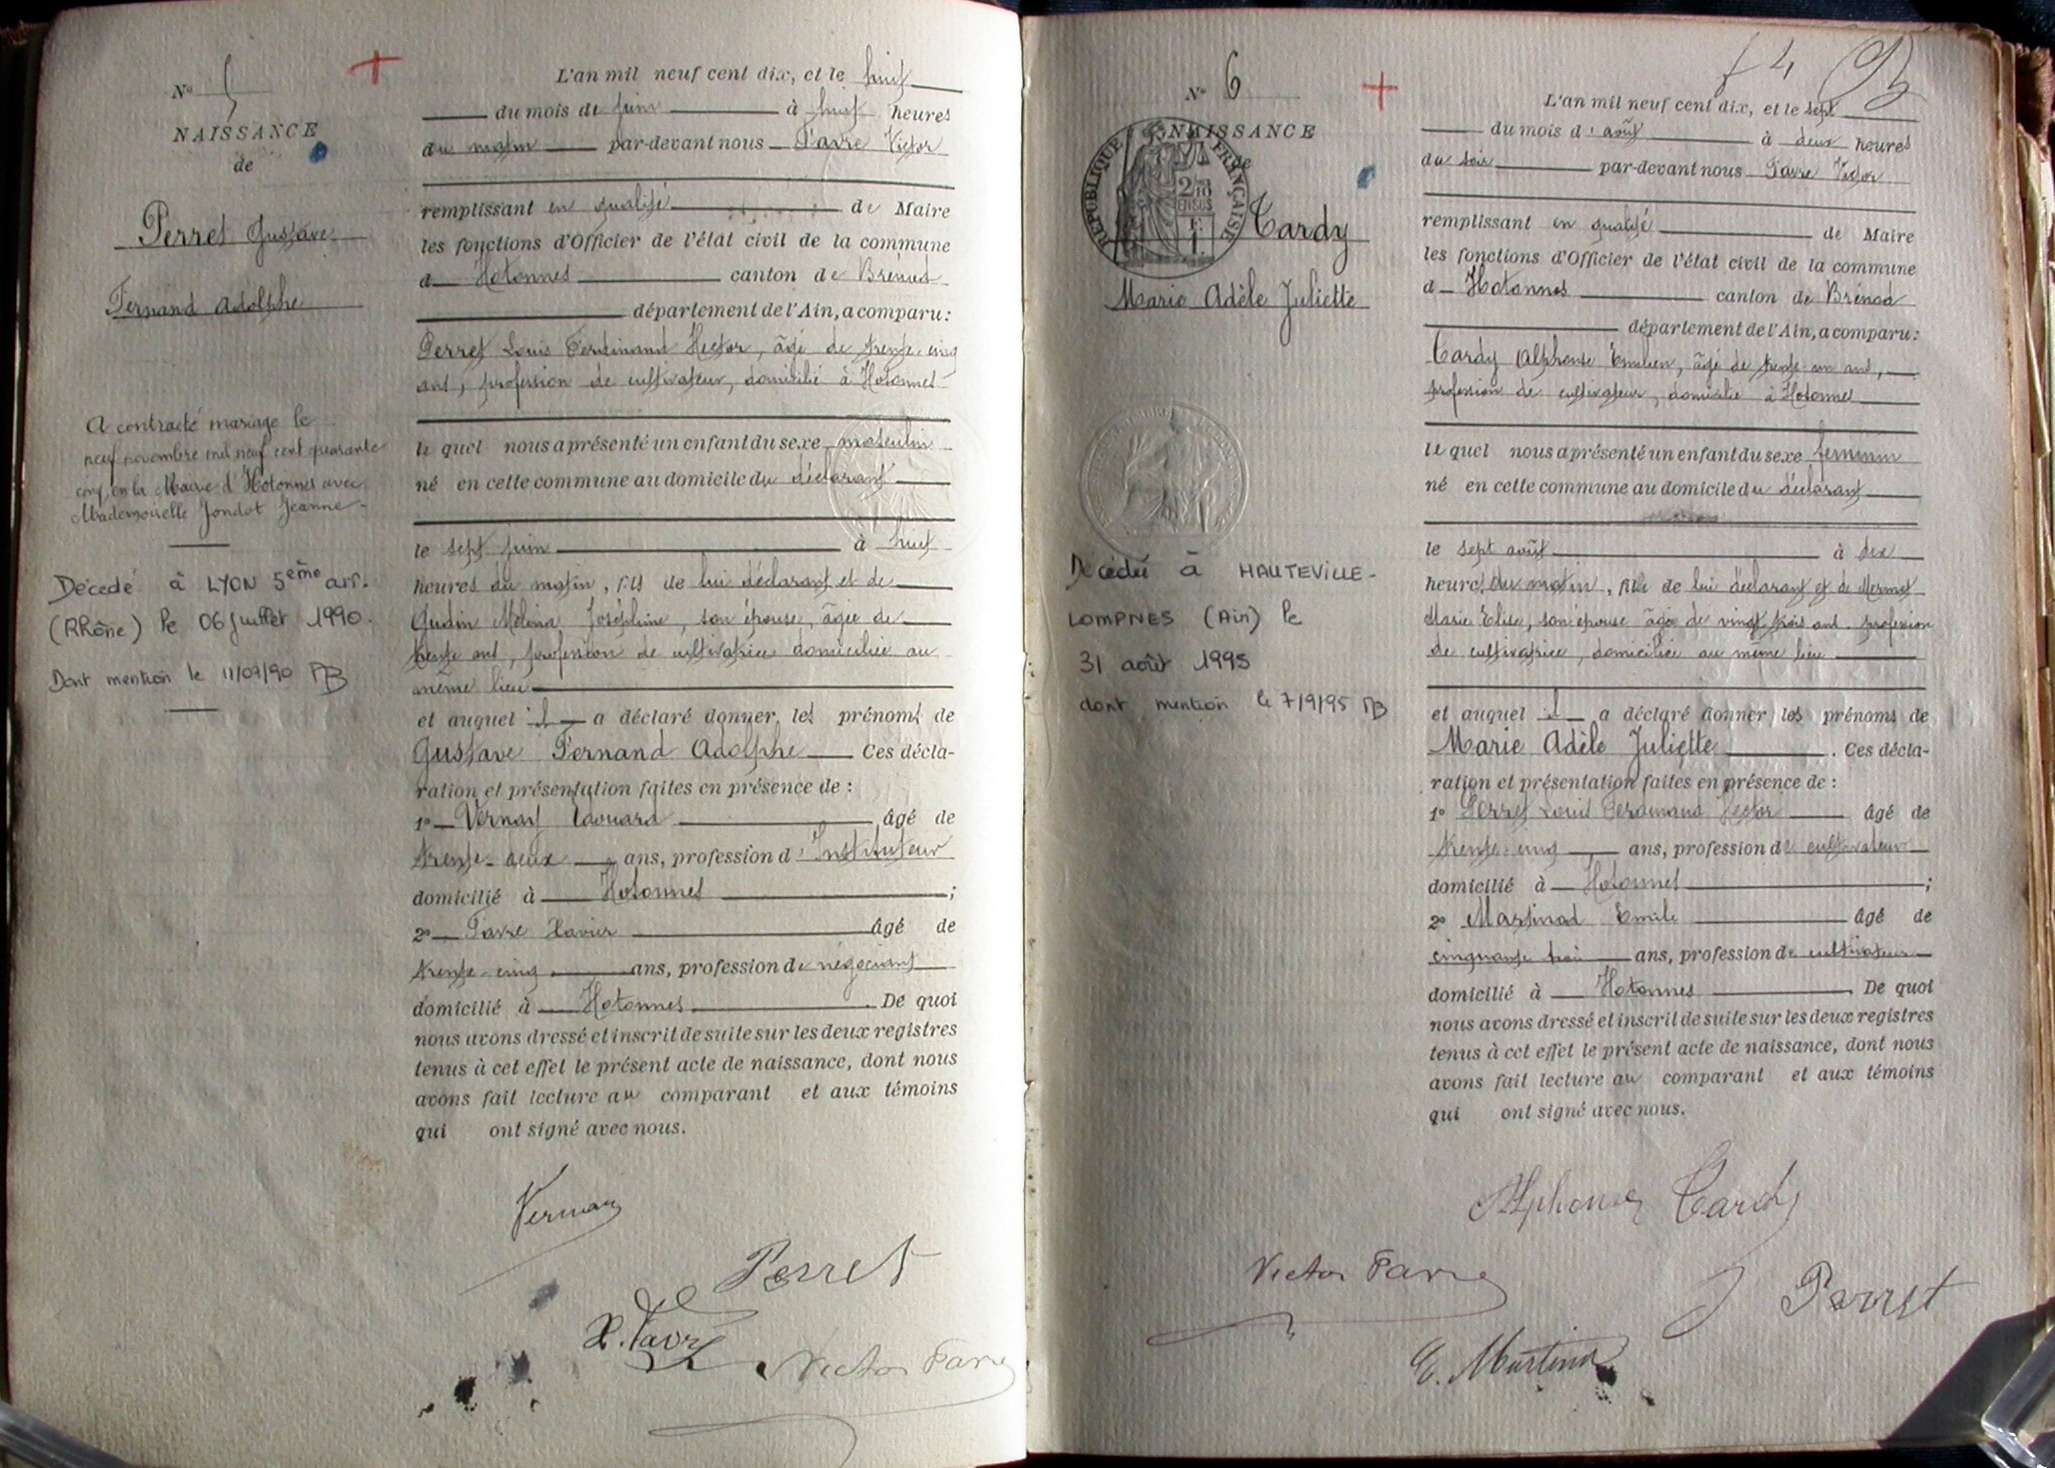 N° 5
NAISSANCE
de
Perret Gustave
Fernand Adolphe
A contracté mariage le
neuf novembre mil neuf cent quarante
cinq, en la Mairie d'Hotonnes avec
Mademoiselle Jondot Jeanne
Décédé à LYON 5ème arr.
(Rhône) le 06 juillet 1990.
Dont mention le 11/07/90
L'an mil neuf cent dix, et le huit
du mois de juin à huit heures
du matin par-devant nous Favre Victor
remplissant en qualité de Maire
les fonctions d'Officier de l'état civil de la commune
d Hotonnes canton de Brénod
département de l'Ain, a comparu:
Perret Louis Ferdinand Hector, âgé de trente-cinq
ans, profession de cultivateur, domicilié à Hotonnes
le quel nous a présenté un enfant du sexe masculin
né en cette commune au domicile du déclarant
le sept juin à huit
heures du matin, fils de lui déclarant et de
Gudin Mélina Joséphine, son épouse, âgée de
trente ans, profession de cultivatrice domiciliée au
même lieu
et auquel il a déclaré donner les prénoms de
Gustave Fernand Adolphe Ces décla-
ration et présentation faites en présence de :
1° Vernay Edouard âgé de
trente-deux ans, profession d'Instituteur
domicilié à Hotonnes ;
2° Favre Xavier âgé de
trente-cinq ans, profession de négociant
domicilié à Hotonnes . De quoi
nous avons dressé et inscrit de suite sur les deux registres
tenus à cet effet le présent acte de naissance, dont nous
avons fait lecture au comparant et aux témoins
qui ont signé avec nous.
Vernay
Perret
X. Favre
Victor Favre
f 4
N° 6
NAISSANCE
de
RÉPUBLIQUE FRANÇAISE
Tardy
Marie Adèle Juliette
Décédée à HAUTEVILLE-
LOMPNES (Ain) le
31 août 1995
dont mention le 7/9/95
L'an mil neuf cent dix, et le sept
du mois d'août à deux heures
du soir par-devant nous Favre Victor
remplissant en qualité de Maire
les fonctions d'Officier de l'état civil de la commune
d Hotonnes canton de Brénod
département de l'Ain, a comparu:
Tardy Alphonse Emilien, âgé de trente-un ans,
profession de cultivateur, domicilié à Hotonnes
le quel nous a présenté un enfant du sexe féminin
né en cette commune au domicile du déclarant
le sept août à dix
heures du matin, fille de lui déclarant et de Mermet
Marie Elise, son épouse âgée de vingt trois ans profession
de cultivatrice, domiciliée au même lieu
et auquel il a déclaré donner les prénoms de
Marie Adèle Juliette . Ces décla-
ration et présentation faites en présence de :
1° Perret Louis Ferdinand Hector âgé de
trente-cinq ans, profession de cultivateur
domicilié à Hotonnes ;
2° Martinod Emile âgé de
cinquante trois ans, profession de cultivateur
domicilié à Hotonnes . De quoi
nous avons dressé et inscrit de suite sur les deux registres
tenus à cet effet le présent acte de naissance, dont nous
avons fait lecture au comparant et aux témoins
qui ont signé avec nous.
Alphonse Tardy
Victor Favre
Perret
E. Martinod